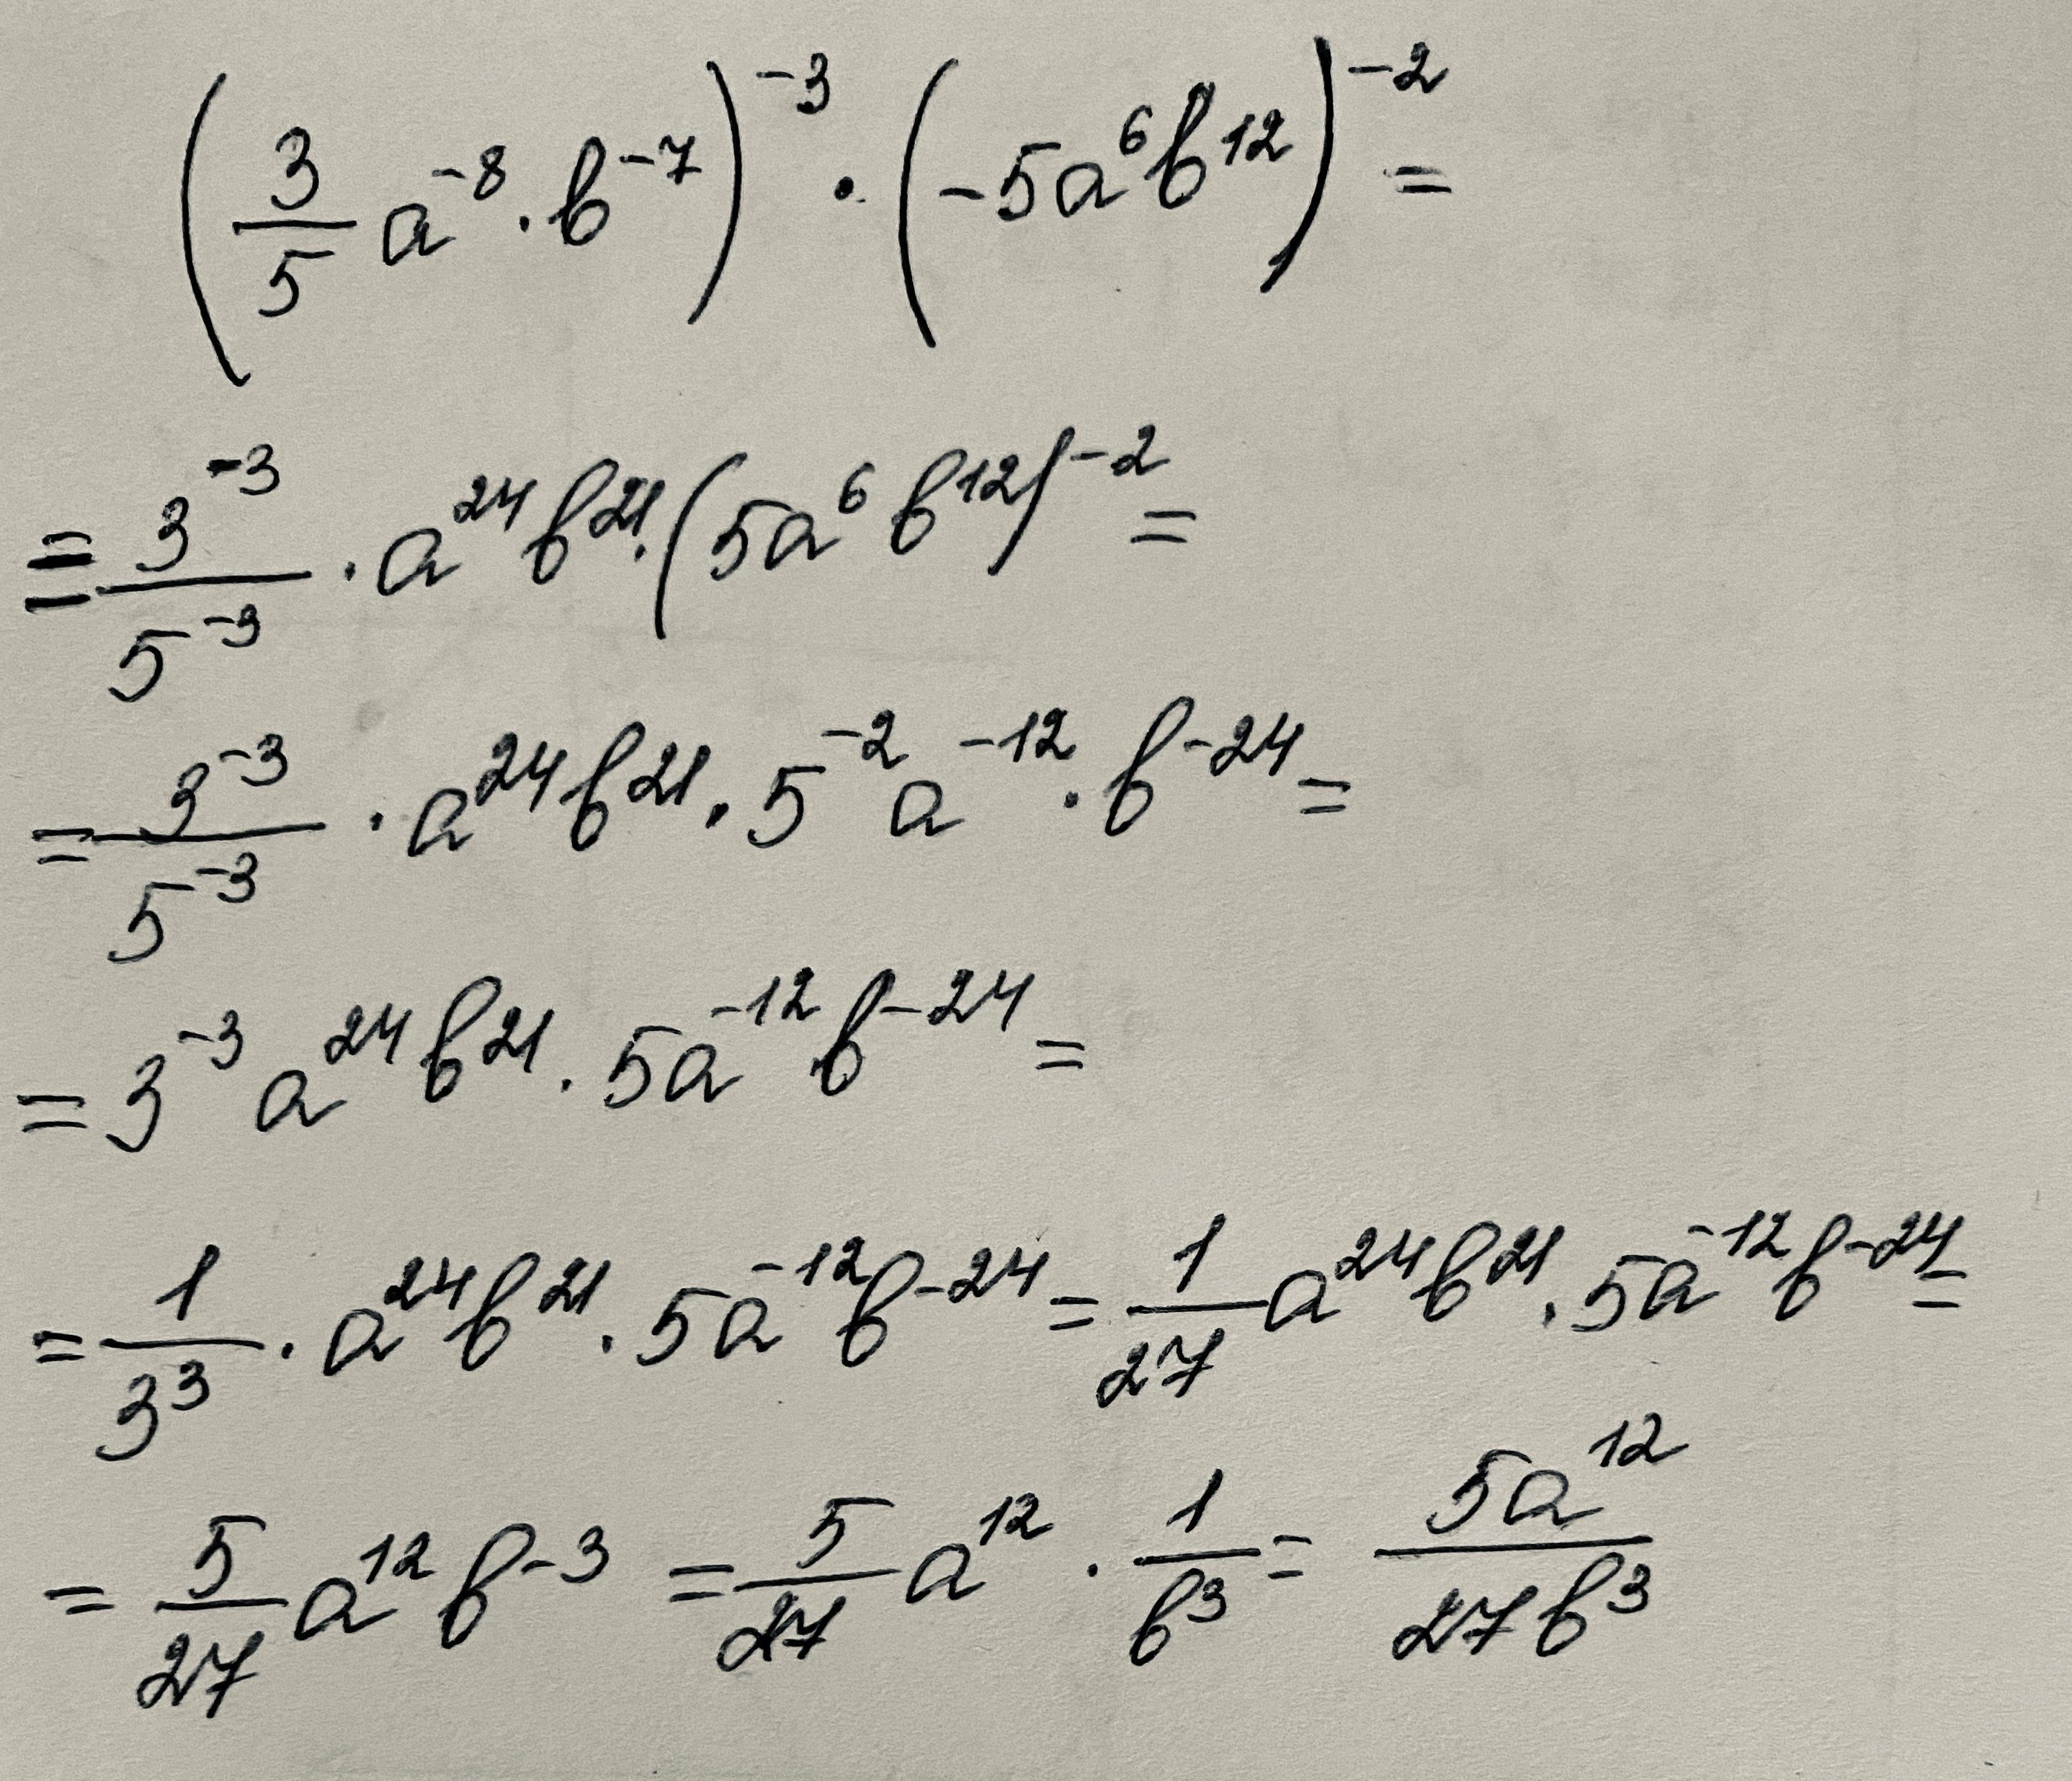 (3/5 a^-8 · b^-7)^-3 · (-5a^6 b^12)^-2 =
= 3^-3/5^-3 · a^24 b^21 · (5a^6 b^12)^-2 =
= 3^-3/5^-3 · a^24 b^21 · 5^-2 a^-12 · b^-24 =
= 3^-3 a^24 b^21 · 5a^-12 b^-24 =
= 1/3^3 · a^24 b^21 · 5a^-12 b^-24 = 1/27 a^24 b^21 · 5a^-12 b^-24 =
= 5/27 a^12 b^-3 = 5/27 a^12 · 1/b^3 = 5a^12/27b^3